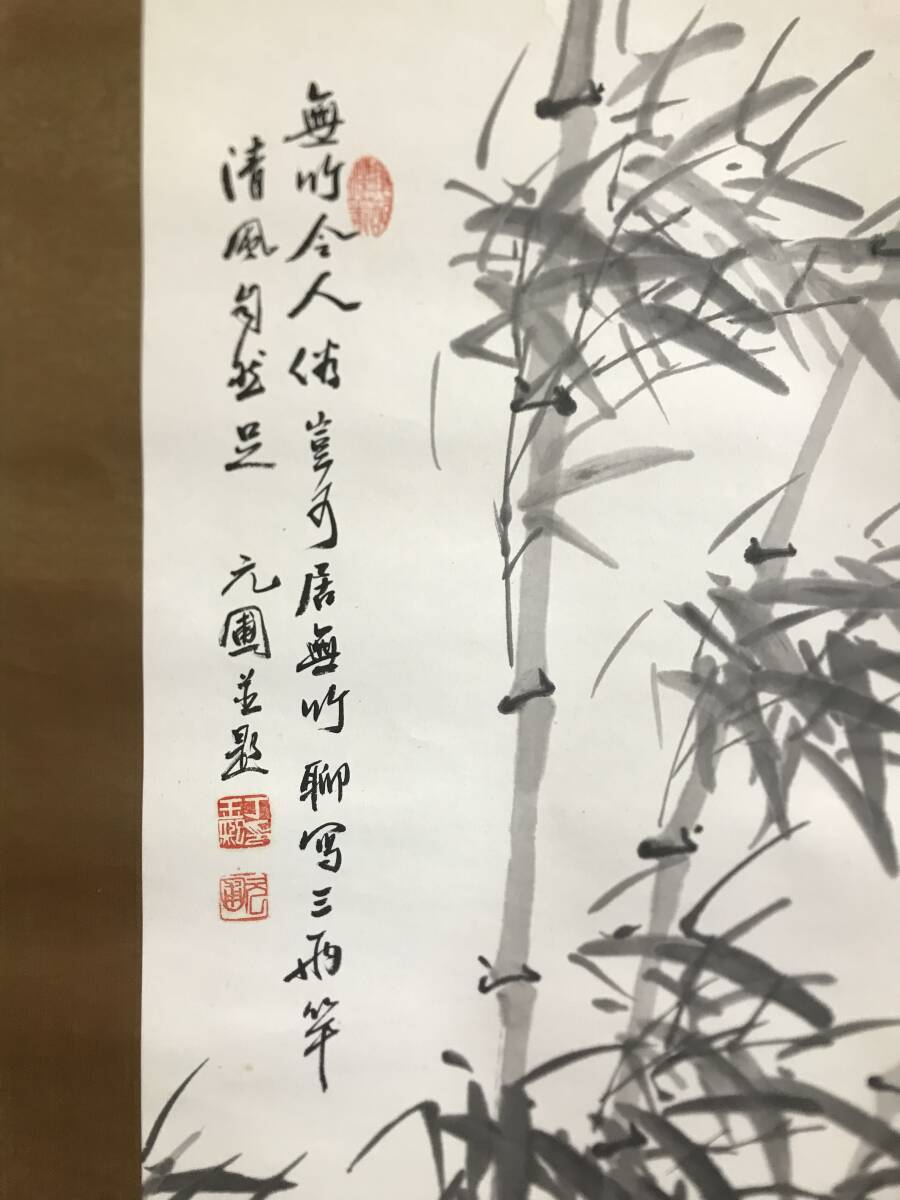 無竹令人俗豈可居無竹聊写三両竿
清風自然足 元圃並題